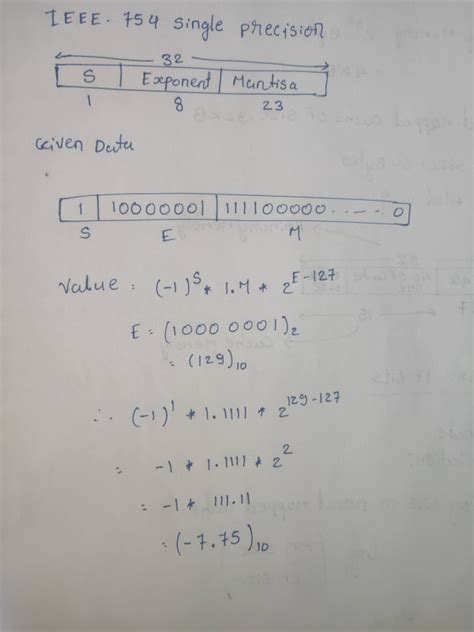 IEEE. 754 single precision
32
S Exponent Mantisa
1 8 23
Given Data
1 10000001 111100000.....0
S E M
Value = (-1)^S * 1.M * 2^E-127
E = (1000 0001)2
= (129)10
∴ (-1)^1 * 1.1111 * 2^129-127
= -1 * 1.1111 * 2^2
= -1 * 111.11
= (-7.75)10